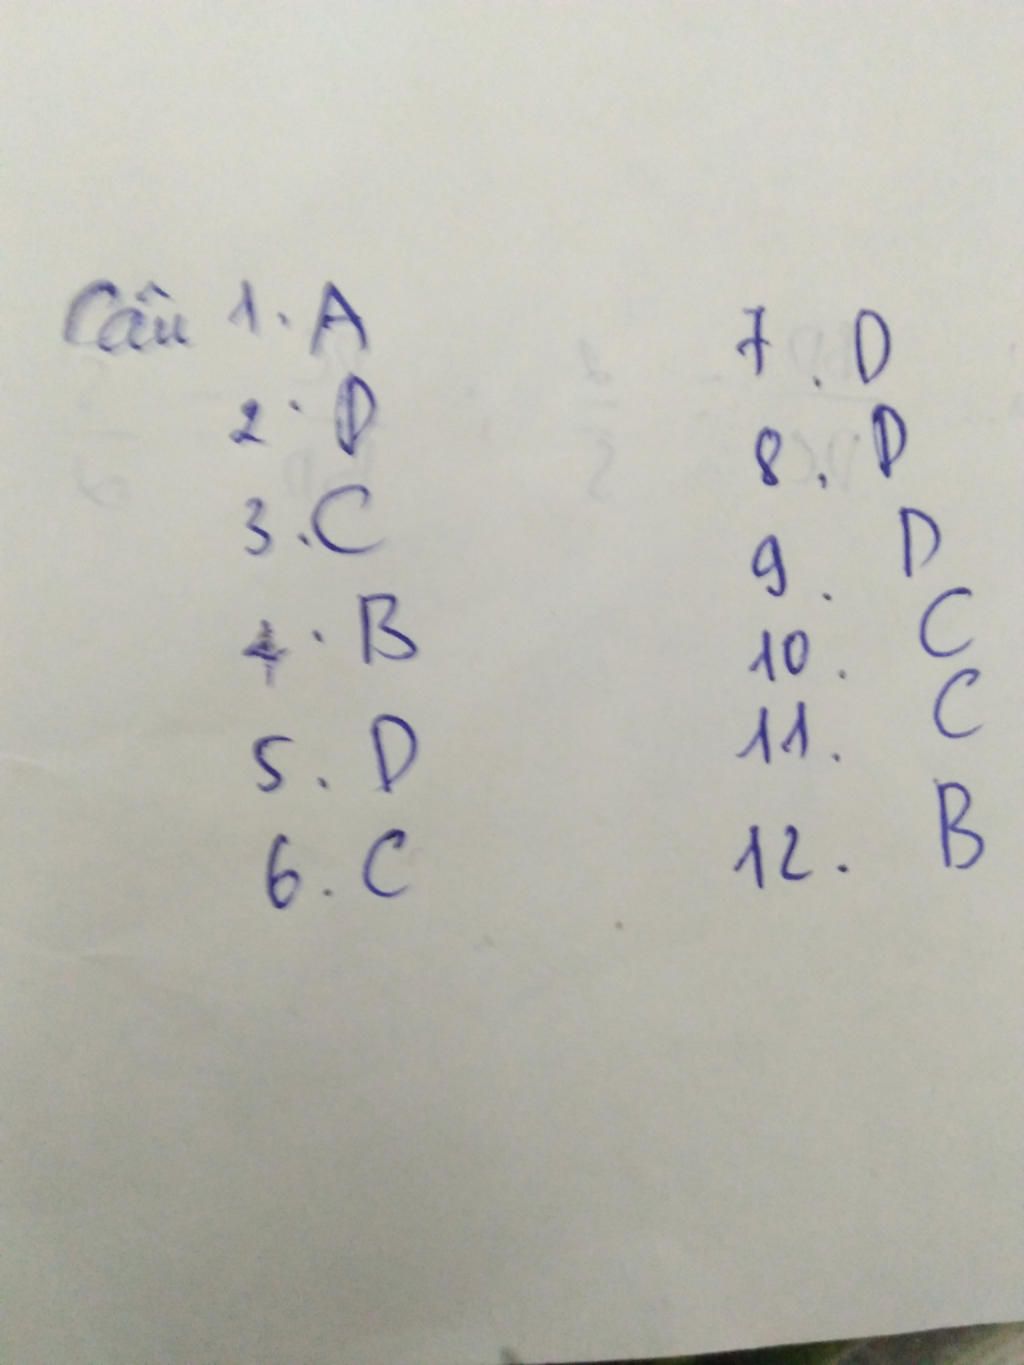 Câu 1. A
2. D
3. C
4. B
5. D
6. C
7. D
8. D
9. D
10. C
11. C
12. B